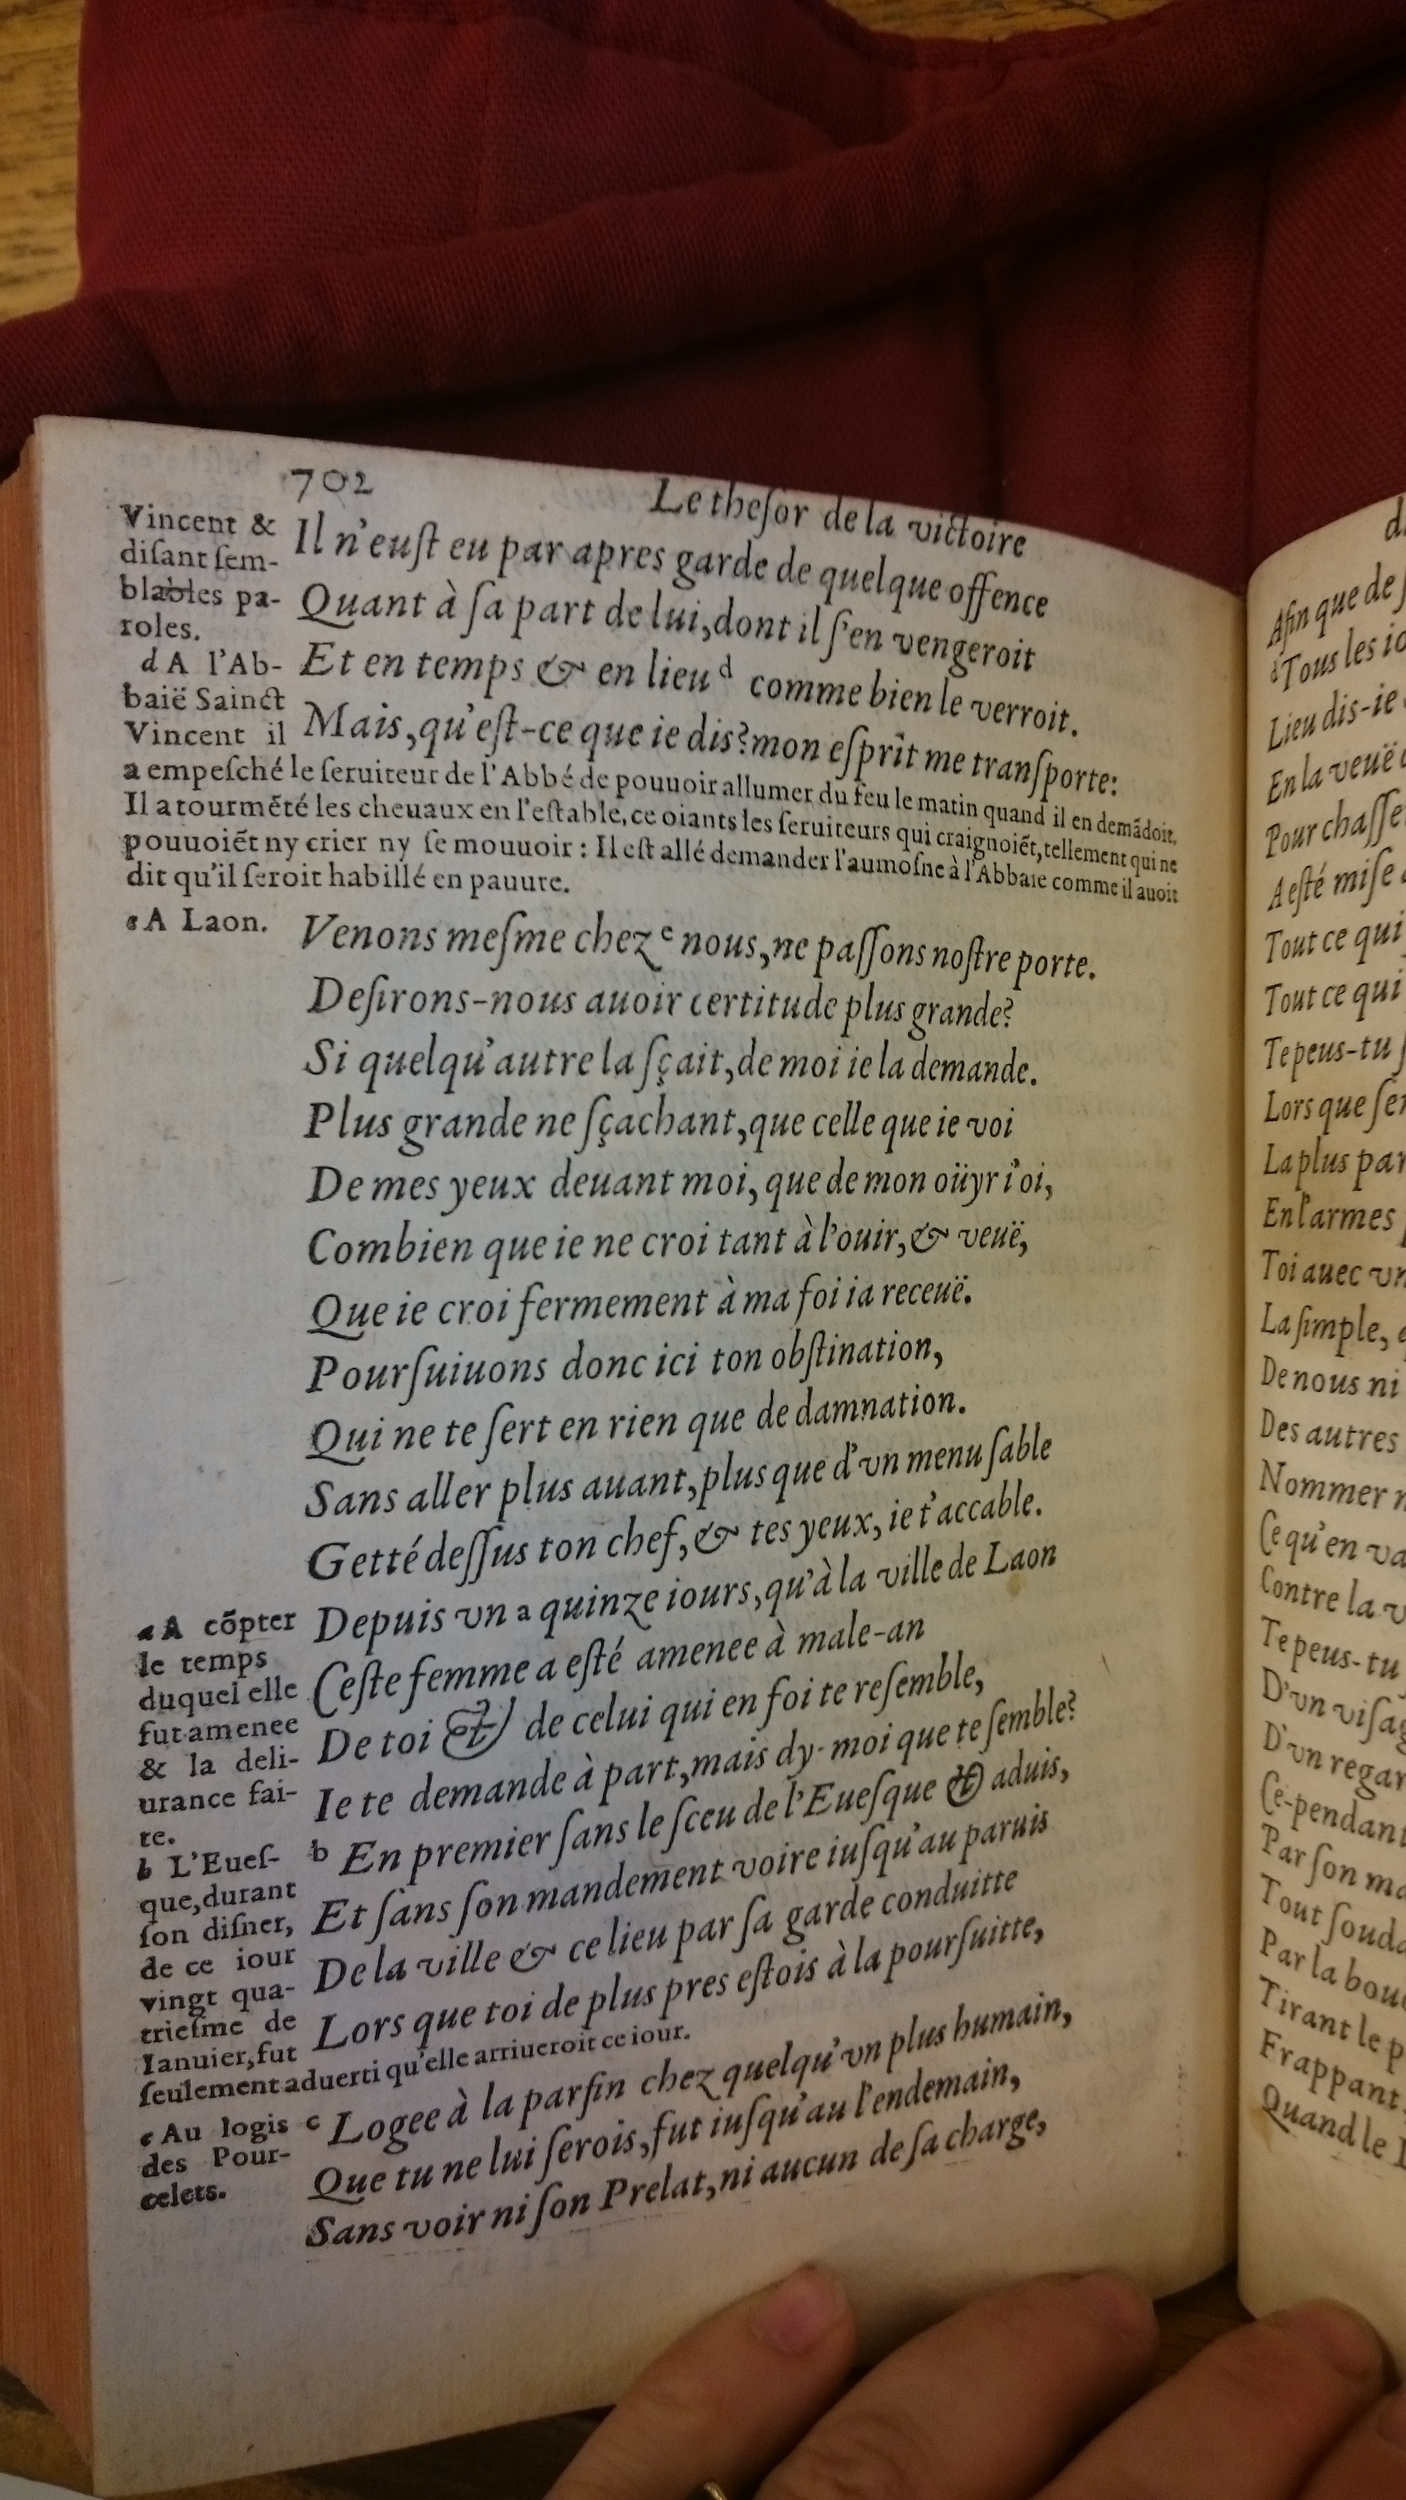 702
Le theſor de la victoire
Vincent &
diſant ſem-
blables pa-
roles.
d A l'Ab-
baië Sainct
Vincent il
Il n'euſt eu par apres garde de quelque offence
Quant à ſa part de lui, dont il ſ'en vengeroit
Et en temps & en lieu d comme bien le verroit.
Mais, qu'eſt-ce que ie dis? mon eſprit me tranſporte:
a empeſché le ſeruiteur de l'Abbé de pouuoir allumer du feu le matin quand il en demãdoit.
Il a tourmẽté les cheuaux en l'eſtable, ce oiants les ſeruiteurs qui craignoiẽt, tellement qui ne
pouuoiẽt ny crier ny ſe mouuoir : Il eſt allé demander l'aumoſne à l'Abbaïe comme il auoit
dit qu'il ſeroit habillé en pauure.
e A Laon.
Venons meſme chez e nous, ne paſſons noſtre porte.
Deſirons-nous auoir certitude plus grande?
Si quelqu'autre la ſçait, de moi ie la demande.
Plus grande ne ſçachant, que celle que ie voi
De mes yeux deuant moi, que de mon oüyr i'oi,
Combien que ie ne croi tant à l'ouir, & veuë,
Que ie croi fermement à ma foi ia receuë.
Pourſuiuons donc ici ton obſtination,
Qui ne te ſert en rien que de damnation.
Sans aller plus auant, plus que d'vn menu ſable
Getté deſſus ton chef, & tes yeux, ie t'accable.
a A cõpter
le temps
duquel elle
fut amenee
& la deli-
urance fai-
te.
Depuis vn a quinze iours, qu'à la ville de Laon
Ceſte femme a eſté amenee à male-an
De toi & de celui qui en foi te reſemble,
Ie te demande à part, mais dy-moi que te ſemble?
b L'Eueſ-
que, durant
ſon diſner,
de ce iour
vingt qua-
trieſme de
Ianuier, fut
b En premier ſans le ſceu de l'Eueſque & aduis,
Et ſans ſon mandement voire iuſqu'au paruis
De la ville & ce lieu par ſa garde conduitte
Lors que toi de plus pres eſtois à la pourſuitte,
ſeulement aduerti qu'elle arriueroit ce iour.
c Au logis
des Pour-
celets.
c Logee à la parfin chez quelqu'vn plus humain,
Que tu ne lui ſerois, fut iuſqu'au l'endemain,
Sans voir ni ſon Prelat, ni aucun de ſa charge,
Afin que de
d Tous les
Lieu dis-ie
En la veuë
Pour
A eſté miſe
Tout ce qui
Tout ce qui
Te peus-tu
Lors que
La plus
En l'armes
Toi auec
La ſimple,
De nous ni
Des autres
Nommer
Ce qu'en
Contre la
Te peus-tu
D'vn
D'vn
Ce-pendant
Par ſon
Tout
Par la
Tirant le
Frappant
Quand le